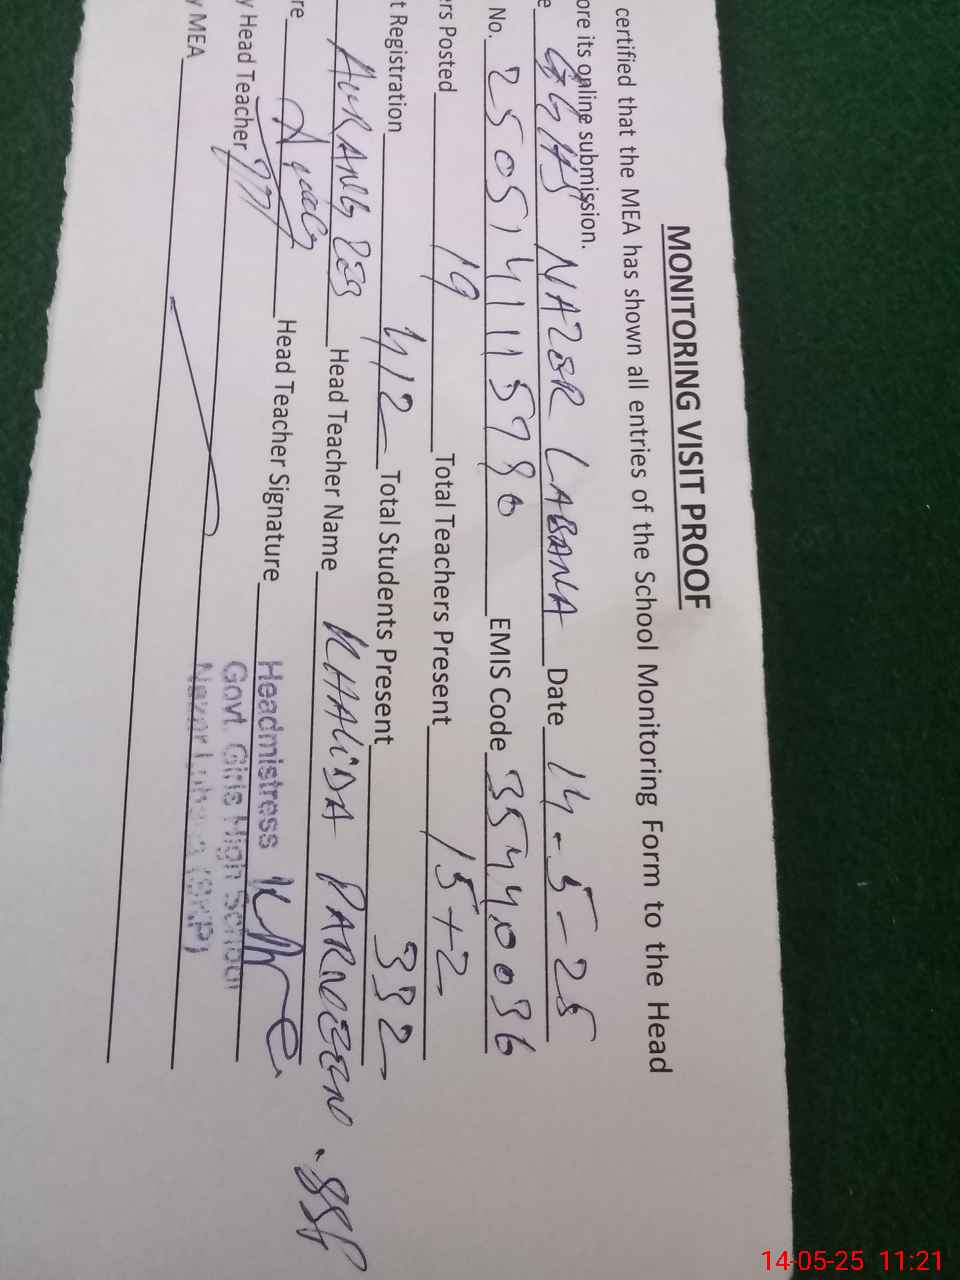 MONITORING VISIT PROOF
certified that the MEA has shown all entries of the School Monitoring Form to the Head
ore its online submission.
e GGHS NAZER LABANA Date 14-5-25
No. 2505141115980 EMIS Code 35440036
ers Posted 19 Total Teachers Present 15+2
t Registration 412 Total Students Present 332
AURANGZEB Head Teacher Name KHALIDA PARVEEN . SST
re Head Teacher Signature
y Head Teacher
y MEA
Headmistress
Govt. Girls High School
14-05-25 11:21